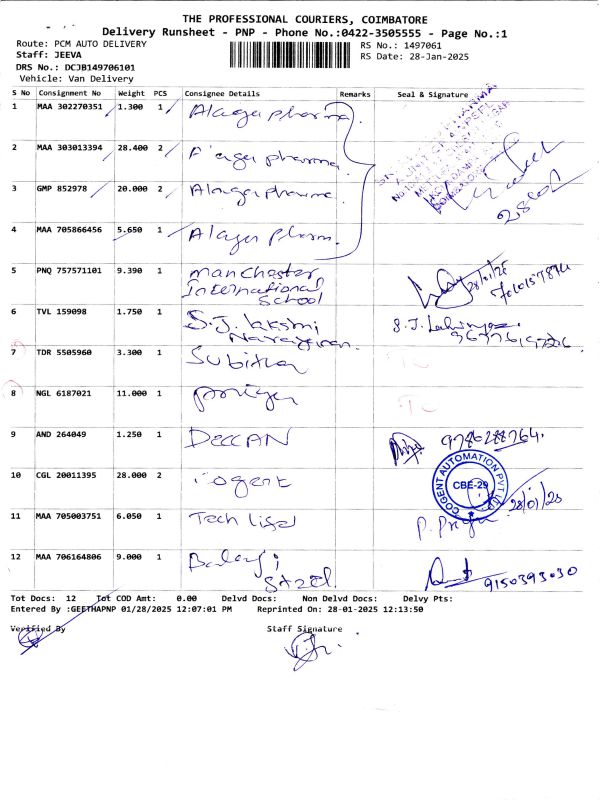 THE PROFESSIONAL COURIERS, COIMBATORE
Delivery Runsheet - PNP - Phone No.:0422-3505555 - Page No.:1
Route: PCM AUTO DELIVERY
RS No.: 1497061
Staff: JEEVA
RS Date: 28-Jan-2025
DRS No.: DCJB149706101
Vehicle: Van Delivery
S No Consignment No Weight PCS Consignee Details Remarks Seal & Signature
1 MAA 302270351 1.300 1 Alagar pharma
2 MAA 303013394 28.400 2 pharma
3 GMP 852978 20.000 2 Alagar pharma
4 MAA 705866456 5.650 1 Alagar
5 PNQ 757571101 9.390 1 manchester
International
School
6 TVL 159098 1.750 1 S.J. laksmi
Narayanan. S.J.
7 TDR 5505960 3.300 1
8 NGL 6187021 11.000 1
9 AND 264049 1.250 1 DECCAN 9786288764.
10 CGL 20011395 28.000 2
COGENT AUTOMATION PVT LTD
CBE-29
28/01/25
11 MAA 705003751 6.050 1 Tech P.
12 MAA 706164806 9.000 1 Balaji
Steel 9150393030
Tot Docs: 12 Tot COD Amt: 0.00 Delvd Docs: Non Delvd Docs: Delvy Pts:
Entered By :GEETHAPNP 01/28/2025 12:07:01 PM Reprinted On: 28-01-2025 12:13:50
Verified By Staff Signature